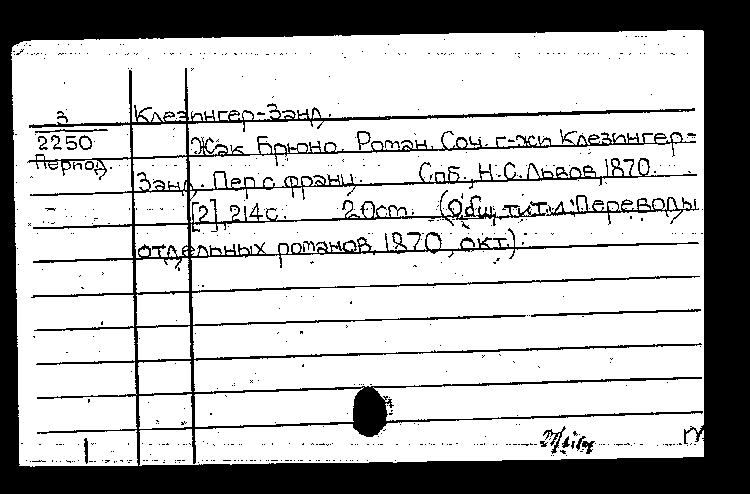 3
2250
Период.
Клезингер-Занд.
Жак Брюно. Роман. Соч. г-жи Клезингер-
Занд. Пер с франц. Спб., Н.С.Львов, 1870.
[2], 214с. 20см. (Общ. тит.л: Переводы
отдельных романов, 1870, окт).